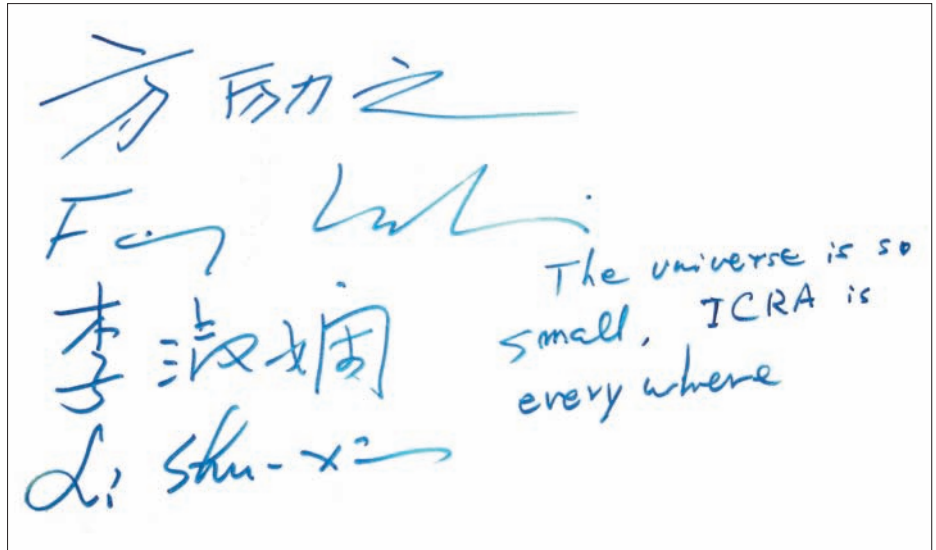 方励之
Fang Lizhi
李淑娴
Li Shu-xian
The universe is so
small, ICRA is
every where